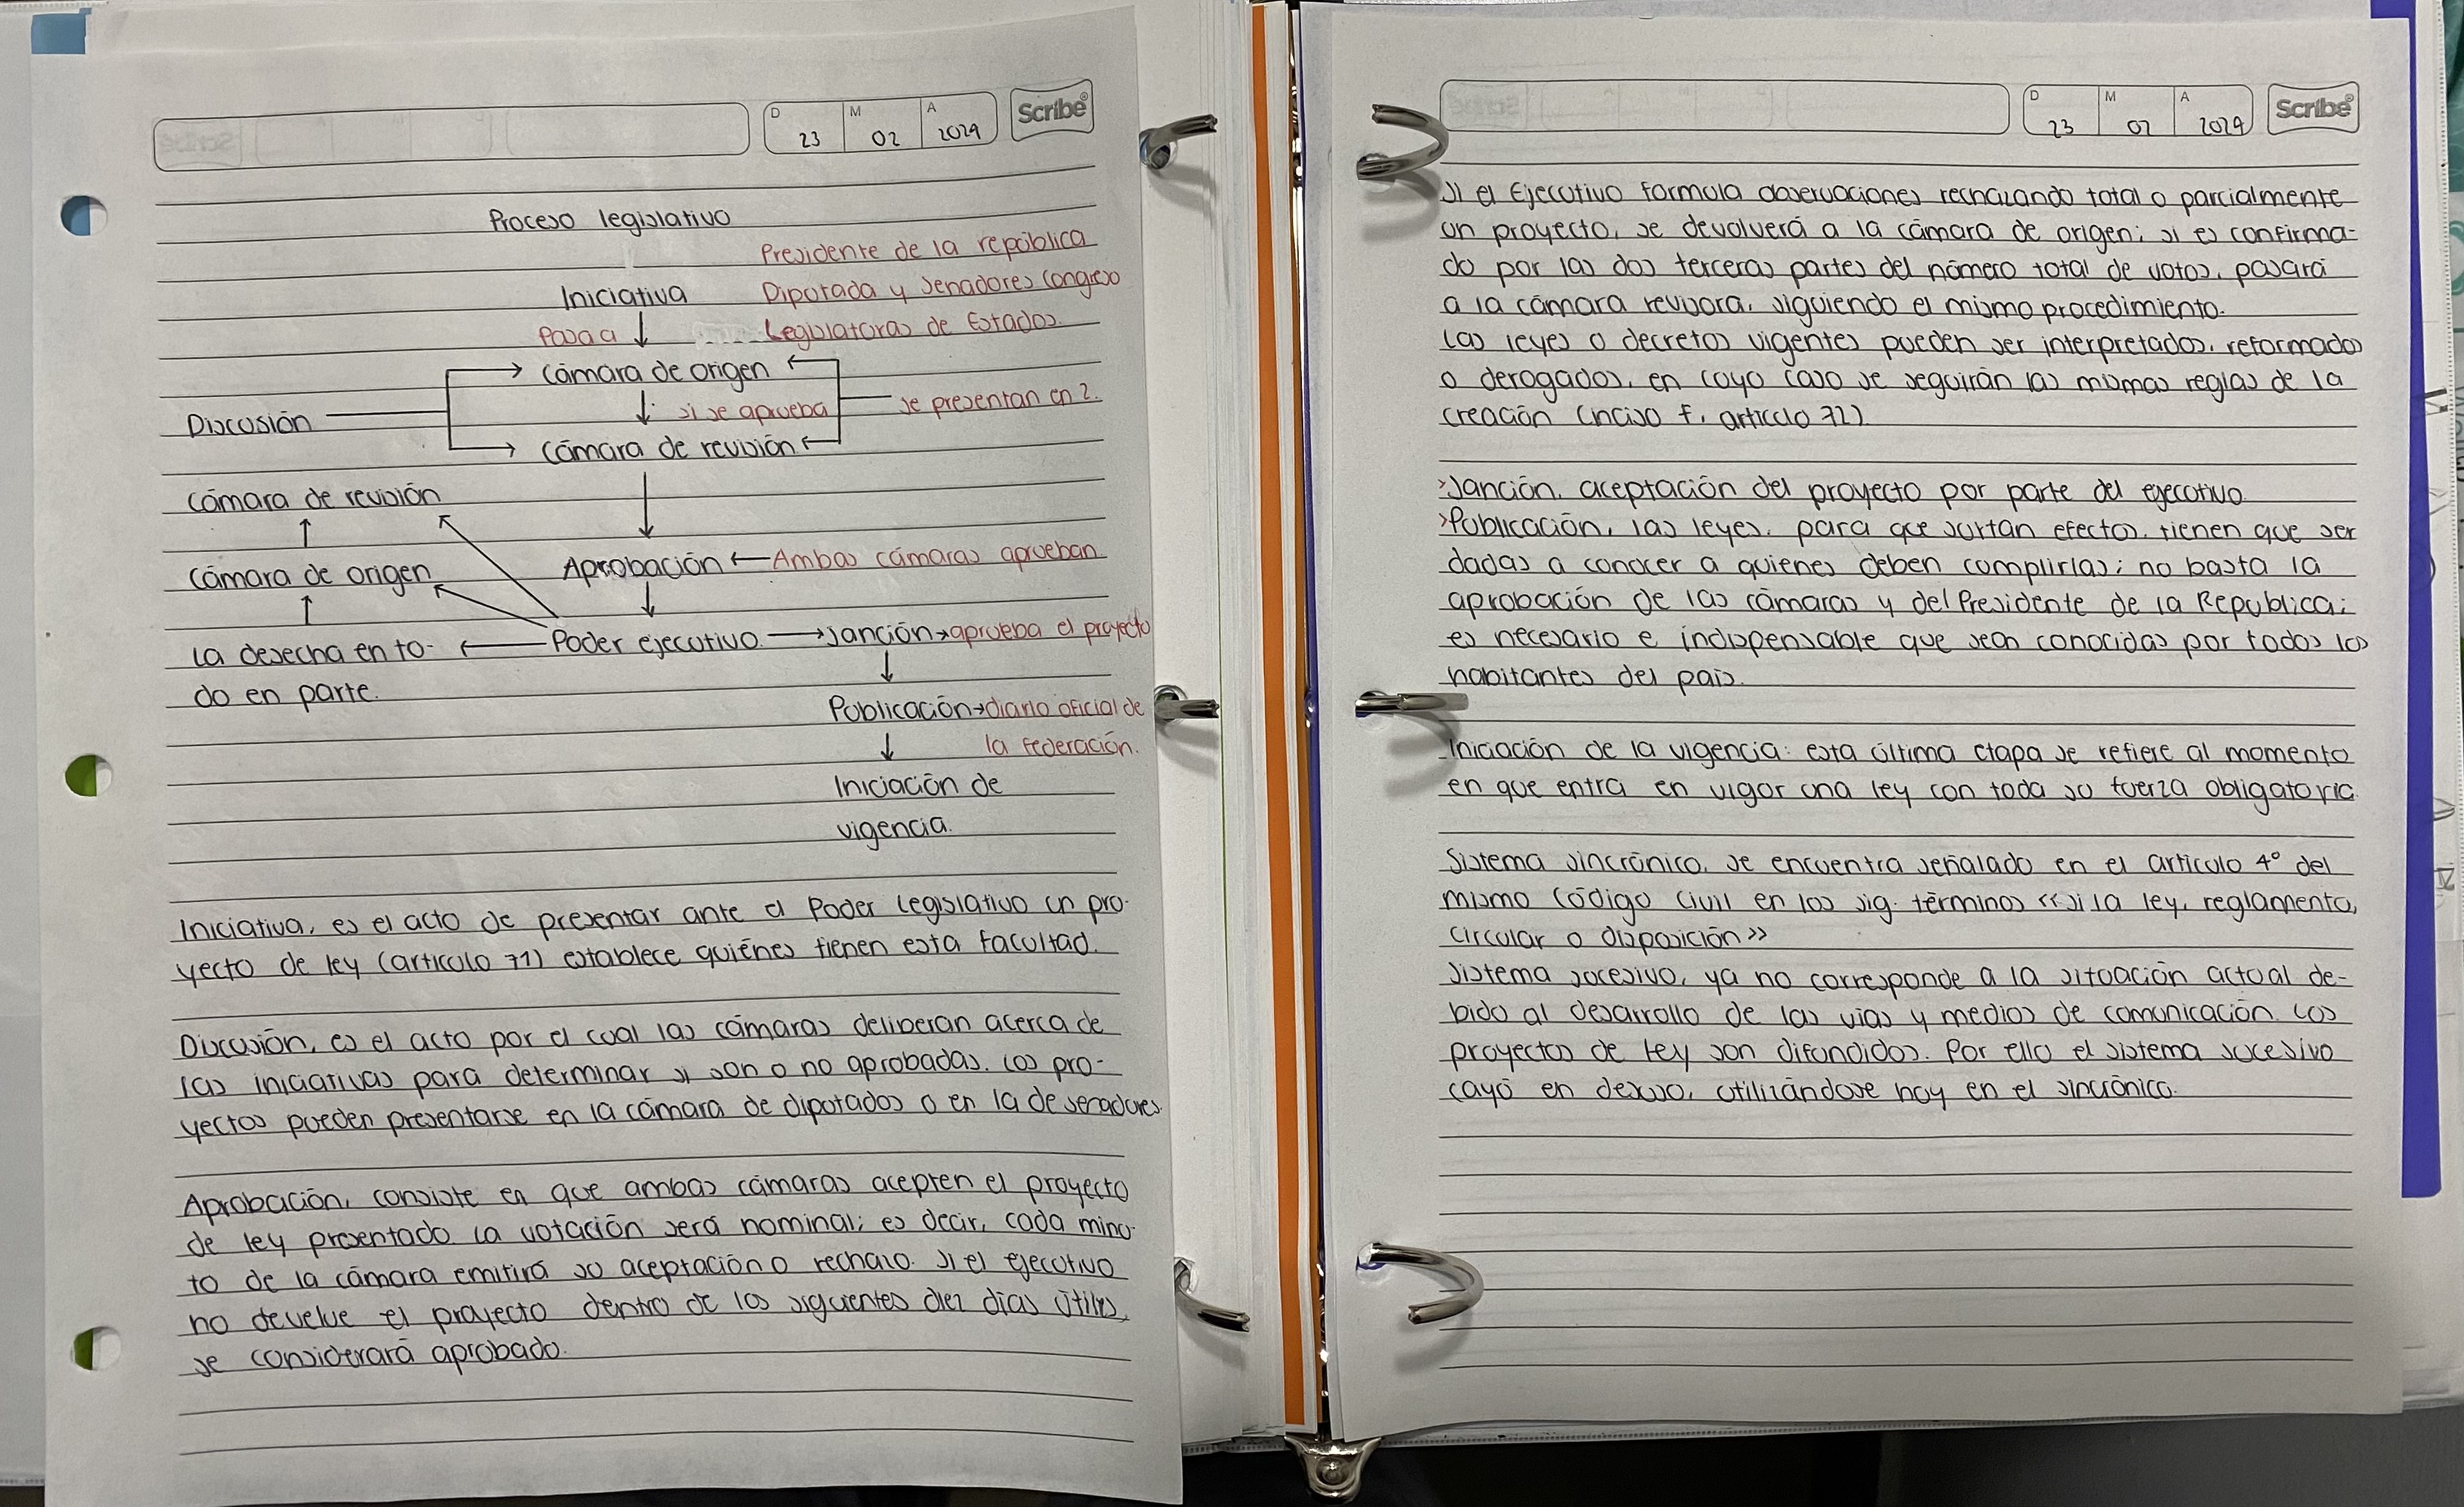 D M A Scribe
23 02 2024
Proceso legislativo
Presidente de la república
Iniciativa Diputada y senadores congreso
Pasa a Legislaturas de Estados.
Cámara de origen
si se aprueba se presentan en 2.
Discusión
Cámara de revisión
Cámara de revisión
Aprobación Ambas cámaras aprueban
Cámara de origen
Poder ejecutivo sanción aprueba el proyecto
La desecha en to-
do en parte.
Publicación diario oficial de
la federación.
Iniciación de
vigencia.
Iniciativa, es el acto de presentar ante el Poder Legislativo un pro-
yecto de ley (articulo 71) establece quiénes tienen esta facultad.
Discusión, es el acto por el cual las cámaras deliberan acerca de
las iniciativas para determinar si son o no aprobadas. Los pro-
yectos pueden presentarse en la cámara de diputados o en la de senadores.
Aprobación, consiste en que ambas cámaras acepten el proyecto
de ley presentado. La votación será nominal; es decir, cada
de la cámara emitirá su aceptación o rechazo. Si el ejecutivo
no devuelve el proyecto dentro de los siguientes diez días útiles,
se considerará aprobado.
D M A Scribe
23 02 2024
Si el Ejecutivo formula observaciones rechazando total o parcialmente
un proyecto, se devolverá a la cámara de origen; si es confirma-
do por las dos terceras partes del número total de votos, pasará
a la cámara revisora, siguiendo el mismo procedimiento.
Las leyes o decretos vigentes pueden ser interpretados, reformados
o derogados, en cuyo caso se seguirán las mismas reglas de la
creación (inciso f, articulo 72).
>Sanción, aceptación del proyecto por parte del ejecutivo
>Publicación, las leyes, para que surtan efectos, tienen que ser
dadas a conocer a quienes deben cumplirlas; no basta la
aprobación de las cámaras y del Presidente de la Republica;
es necesario e indispensable que sean conocidas por todos los
habitantes del país.
Iniciación de la vigencia: esta última etapa se refiere al momento
en que entra en vigor una ley con toda su fuerza obligatoria
Sistema sincrónico, se encuentra señalado en el articulo 4° del
mismo Código Civil en los sig. términos <<si la ley, reglamento,
circular o disposición>>
Sistema sucesivo, ya no corresponde a la situación actual de-
bido al desarrollo de las vías y medios de comunicación. Los
proyectos de ley son difundidos. Por ello el sistema sucesivo
cayó en desuso, utilizándose hoy en el sincrónico.